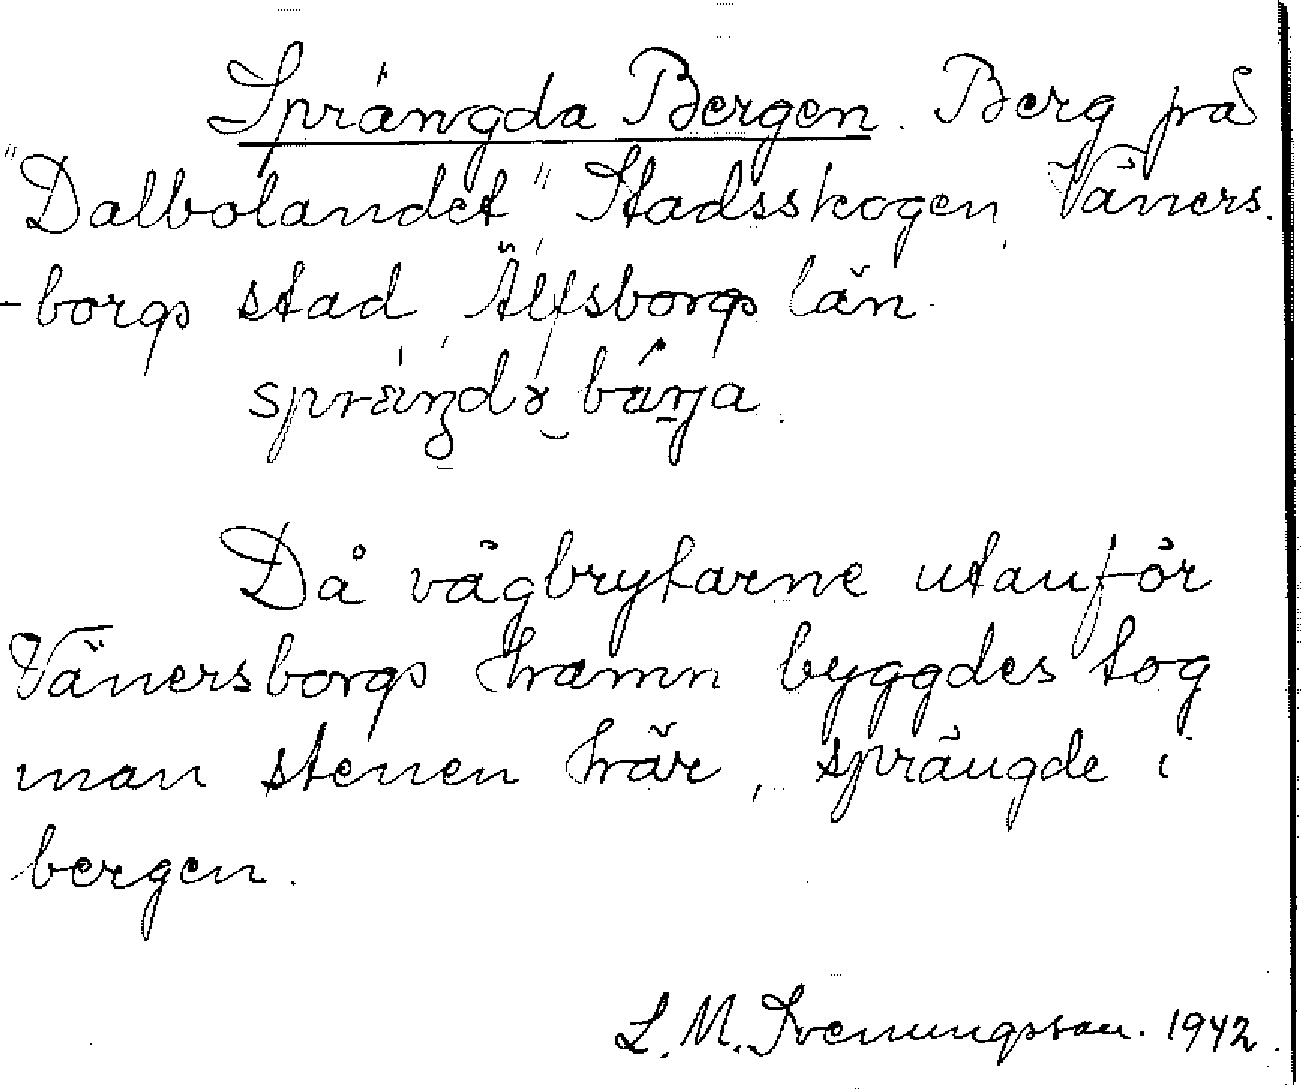 Sprängda Bergen. Berg på
"Dalbolandet" Stadsskogen, Väners-
-borgs stad, Älfsborgs län.
spräŋdə bärja.
Då vågbrytarne utanför
Vänersborgs hamn byggdes tog
man stenen här, sprängde i
bergen.
L. M. Svenungsson. 1942.